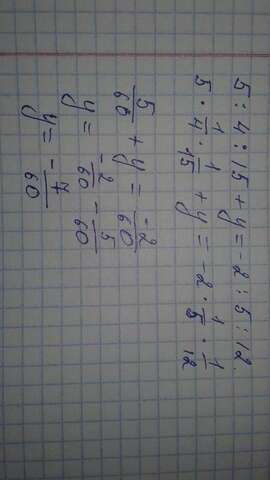 5 : 4 : 15 + y = -2 : 5 : 12
5 · 1/4 · 1/15 + y = -2 · 1/5 · 1/12
5/60 + y = -2/60
y = -2/60 - 5/60
y = - 7/60